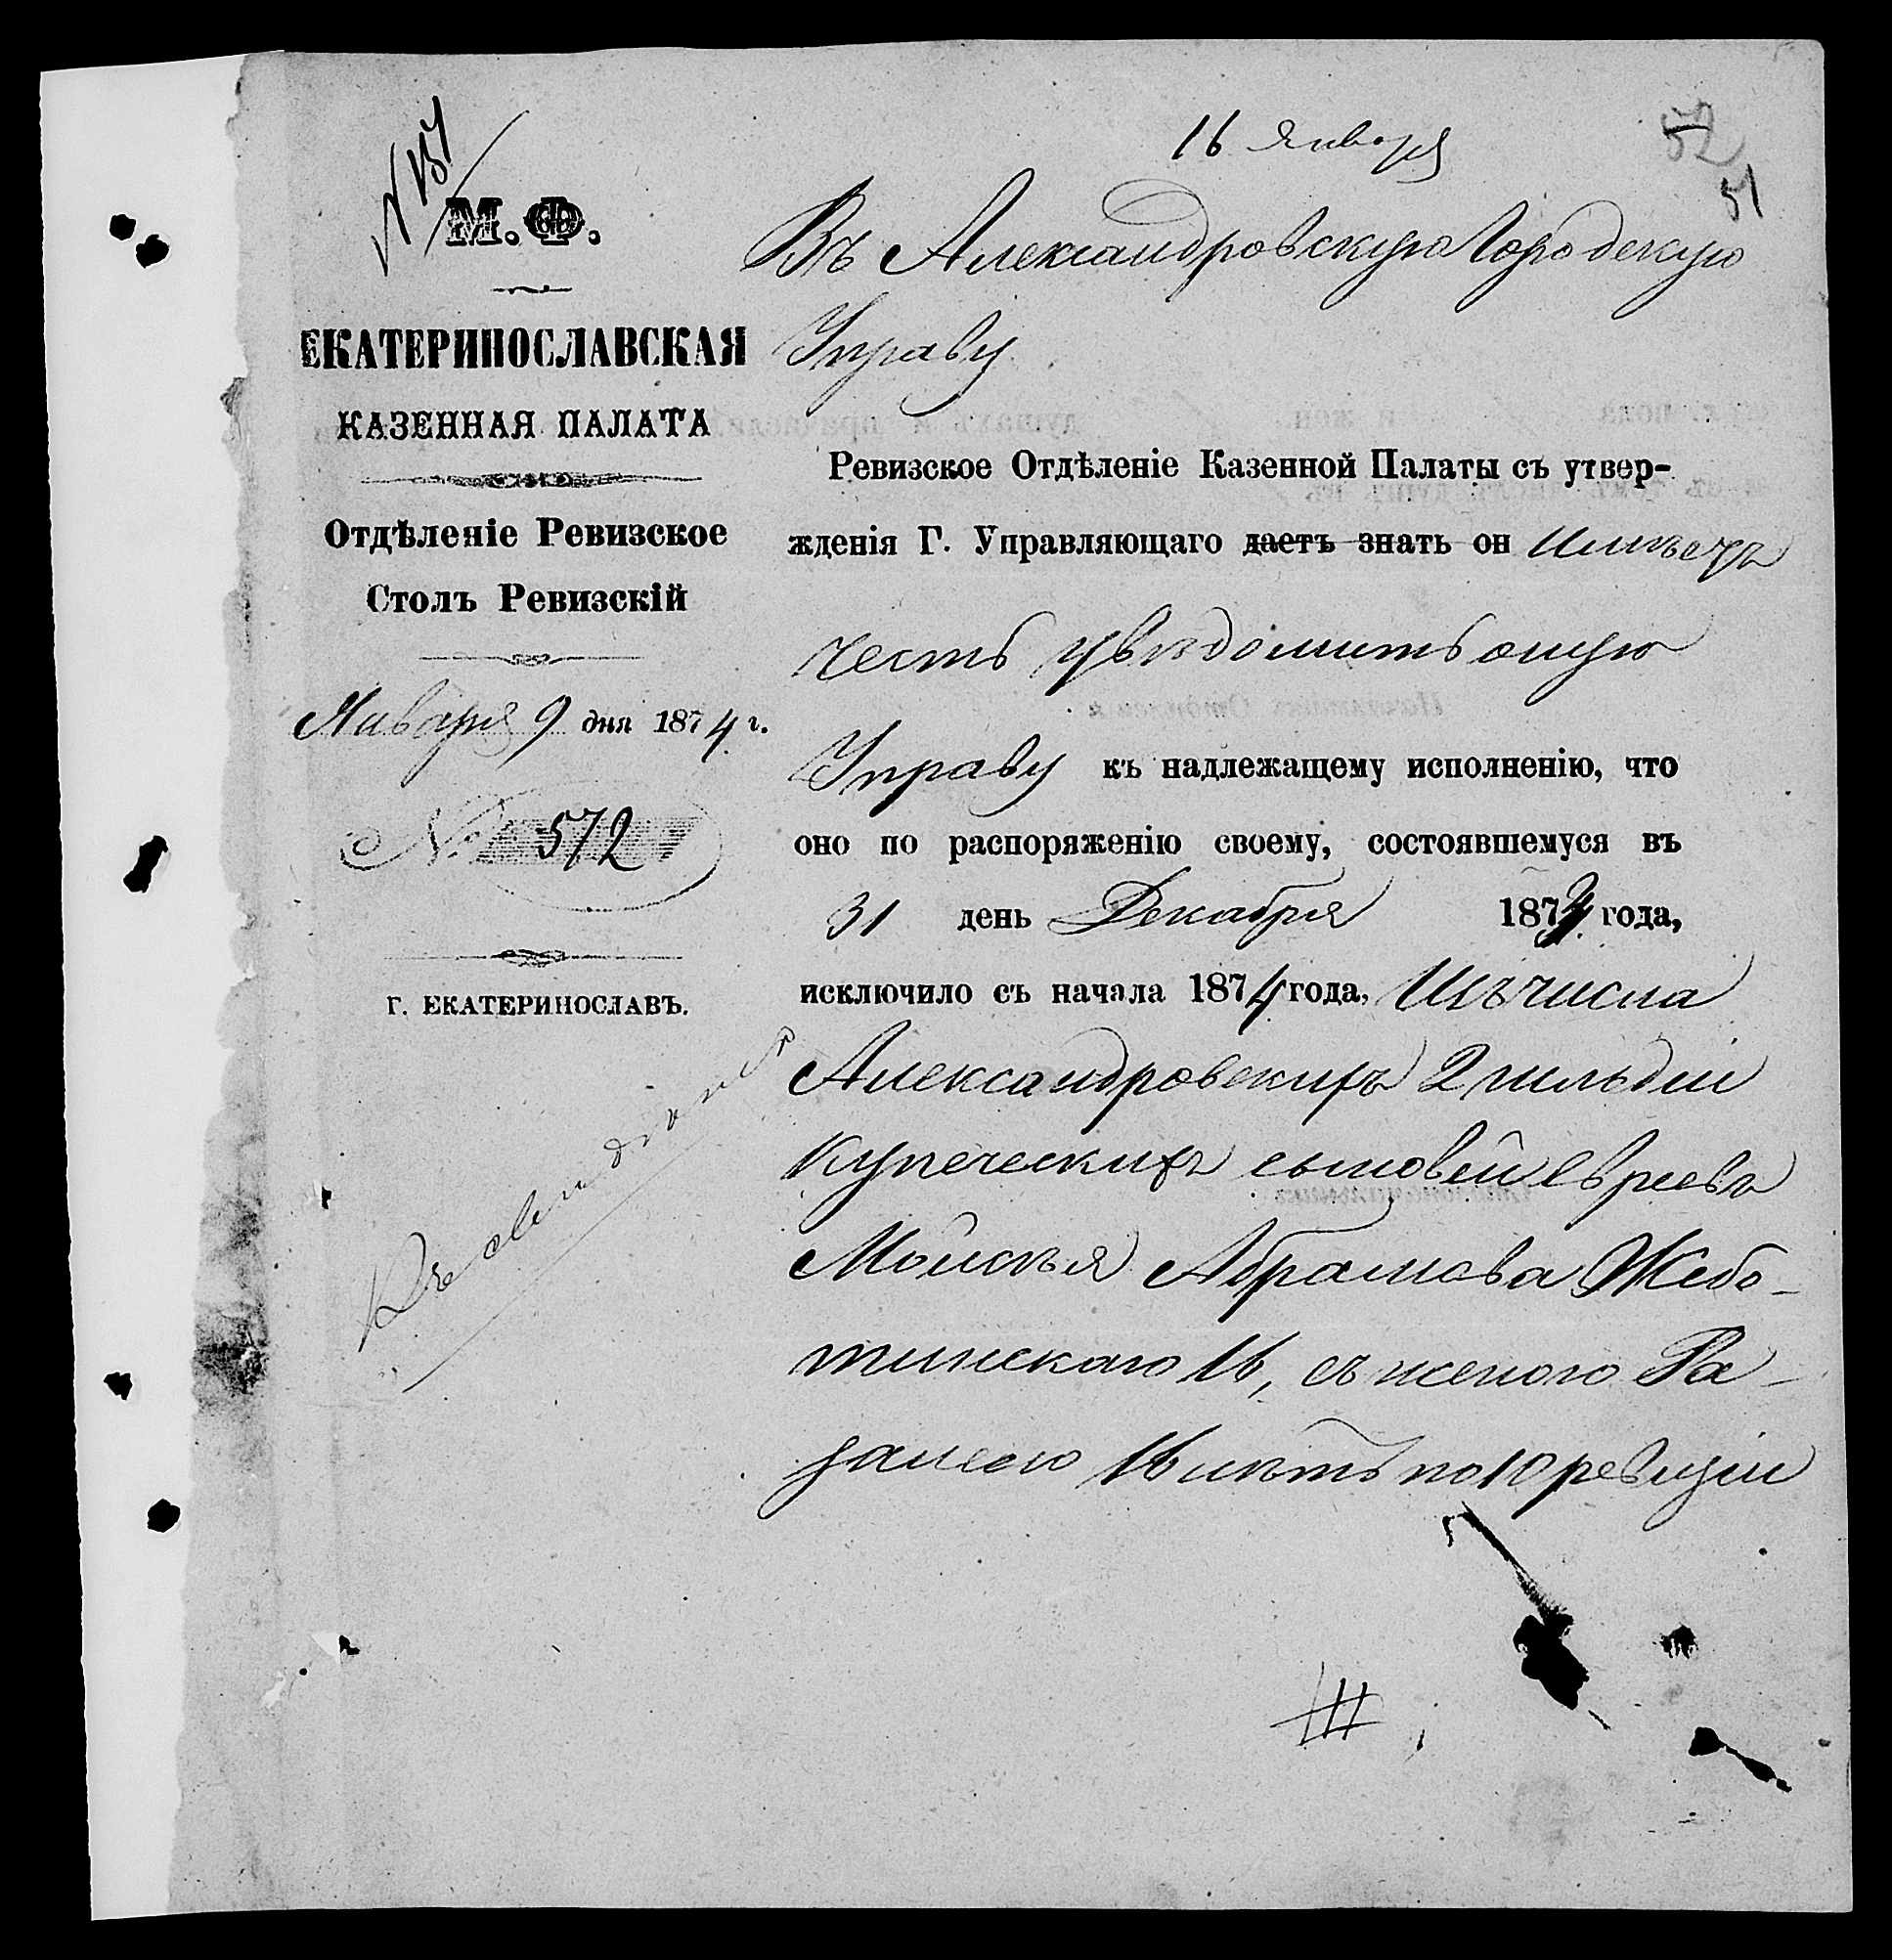 16 Января
52
51
М. Ф.
ЕКАТЕРИНОСЛАВСКАЯ
КАЗЕННАЯ ПАЛАТА
Отдѣленіе Ревизское
Столъ Ревизскій
Января 9 дня 1874 г.
№ 572
Г. ЕКАТЕРИНОСЛАВЪ.
Въ Александровскую Городскую
Управу
Ревизское Отдѣленіе Казенной Палаты съ утвер-
жденія Г. Управляющаго даетъ знать он имѣетъ
честь увѣдомить оную
Управу къ надлежащему исполненію, что
оно по распоряженію своему, состоявшемуся въ
31 день Декабря 1873 года,
исключило съ начала 1874 года, изъ числа
Александровскихъ 2 гильдіи
купеческихъ сыновей евреевъ
Мойсѣя Абрамова Жебо-
тинскаго 16, съ женою Ра-
занею 16 лѣтъ по 10 ревизіи